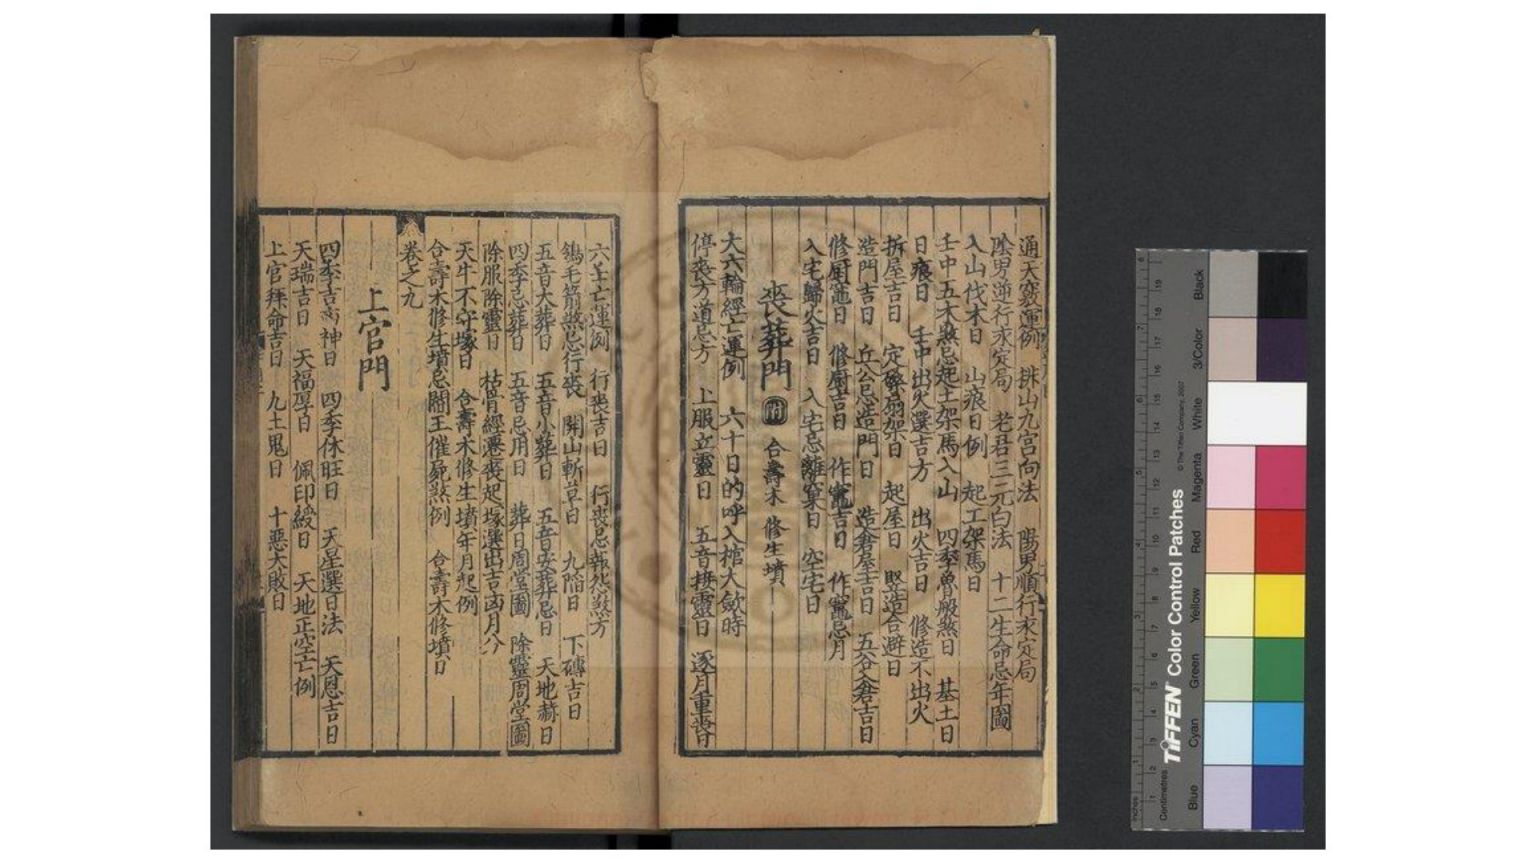 通天竅運例 抹山九宮向法 陽男順行求定局
陰男逆行求定局 老君三元白法 十二生命忌年圖
入山伐木日 山痕日例 起工架馬日
壬申五木煞忌起土架馬入山 四季魯般煞日 基土日
日痕日 壬申出火選吉方 出火吉日 修造不出火
拆屋吉日 定磉扇架日 起屋日 竪造合避日
造門吉日 丘公忌造門日 造倉屋吉日 五谷倉吉日
修厨竈日 修厨吉日 作竈吉日 作竈忌月
入宅歸火吉日 入宅忌離窠日 空宅日
喪葬門 附 合壽木 修生墳
大六輪經亡運例 六十日的呼入棺大斂時
停喪方道忌方 上服立靈日 五音接靈日 逐月重喪日
六壬亡運例 行喪吉日 行喪忌報怨煞方
鴇毛箭煞忌行喪 開山斬草日 九陷日 下磚吉日
五音大葬日 五音小葬日 五音安葬忌日 天地赫日
四季忌葬日 五音忌用日 葬日周堂圖 除靈周堂圖
除服除靈日 枯骨經遷喪起塚選出吉凶月分
天牛不守塚日 合壽木修生墳年月起例
合壽木修生墳忌閻王催屍煞例 合壽木修墳日
卷之九
上官門
四季吉尚神日 四季休旺日 天星選日法 天恩吉日
天瑞吉日 天福厚日 佩印綬日 天地正空亡例
上官拜命吉日 九土鬼日 十惡大敗日
Inches
Centimetres
TIFFEN Color Control Patches
© The Tiffen Company, 2007
Blue
Cyan
Green
Yellow
Red
Magenta
White
3/Color
Black